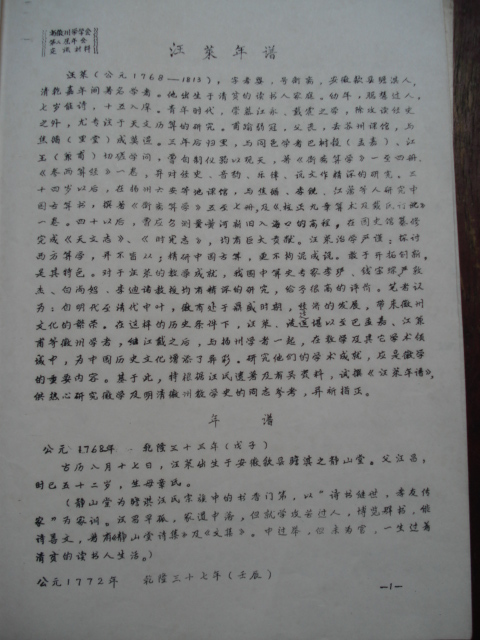 安徽徽州学学会
第二届年会
交流材料
汪莱年谱
汪莱(公元1768—1813),字孝婴,号衡斋,安徽歙县瞻淇人,
清乾嘉年间著名学者。他出生于清贫的读书人家庭,幼年,聪慧过人,
七岁能诗,十五入庠。青年时代,崇慕江永、戴震之学,除攻读经史
之外,尤专注于天文历算的研究。甫踰弱冠,父丧,去苏州课馆,与
焦循(里堂)成莫逆。三年后归里,与同邑学者巴树谷(孟嘉)、江
玉(兼甫)切磋学问,曾自制仪器以观天,著《衡斋算学》一至四册、
《参两算经》一卷,并对经史、音韵、乐律、说文作精深的研究。三
十四岁以后,在扬州六安等地课馆,与焦循、李锐、江藩等人研究中
西方算书,撰著《衡斋算学》五至七册,及《校正九章算术及戴氏订讹》
一卷。四十以后,曾应召测量黄河新旧入海口的高程,在国史馆纂修
完成《天文志》、《时宪志》,均有巨大贡献。汪莱治学严谨:探讨
西方算学,并不盲从;精研中国古算,更不拘泥成说。敢于开拓创新,
是其特色。对于汪莱的数学成就,我国中算史专家李俨、钱宝琮严敦
杰、白尚恕、李迪诸教授均有精深的研究,给予很高的评价。笔者认
为:自明代至清代中叶,徽商处于鼎盛时期,经济的发展,带来徽州
文化的繁荣。在这样的历史条件下,汪莱、凌廷堪以至巴孟嘉、江莱
甫等徽州学者,继江戴之后,与扬州学者一起,在数学及其它学术领
域中,为中国历史文化增添了异彩。研究他们的学术成就,应是徽学
的重要内容。基于此,特根据江氏遗著及有关资料,试撰《汪莱年谱》,
供热心研究徽学及明清徽州数学史的同志参考,并祈指正。
年 谱
公元1768年 乾隆三十三年(戊子)
古历八月十七日,汪莱出生于安徽歙县瞻淇之静山堂。父汪昌,
时已五十二岁,生母董氏。
(静山堂为瞻淇汪氏宗族中的书香门第,以“诗书继世,孝友传
家”为家训。汪昌早孤,家道中落,但就学成名过人,博览群书,能
诗善文,著有《静山堂诗集》及《文集》。中过举,但未为官,一生过着
清贫的读书人生活。)
公元1772年 乾隆三十七年(壬辰)
—1—